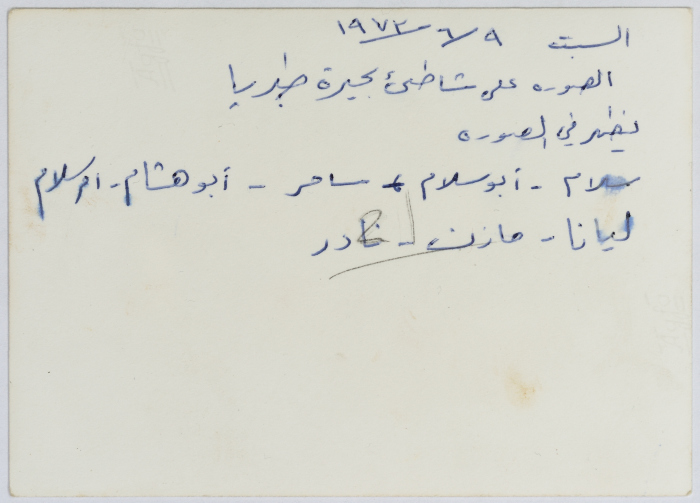 السبت ٩/٦/١٩٧٣
الصوره على شاطئ بحيرة طبريا
يظهر في الصوره
سلام - أبو سلام - ساهر - أبو هشام - ام سلام
ليانا - مازن - نادر